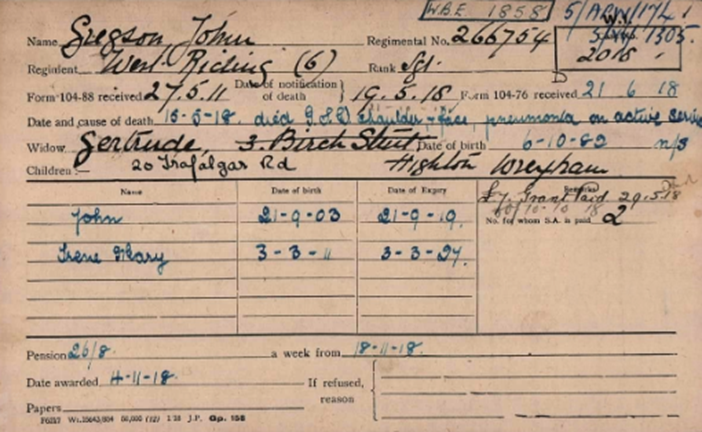 W.B.E. 1858 5/ARW/1741
Name Gregson John Regimental No. 266754 1305.
Regiment West Riding (6) Rank Sgt. 2018
Form 104-88 received 27.5.11 Date of notification of death } 19.5.18 Form 104-76 received 21 6 18
Date and cause of death 15-5-18. died G.S.W shoulder + face, pneumonia on active service
Widow Gertrude, 3. Birch Street Date of birth 6-10-82 n/s
Children:— 20 Trafalgar Rd Highton Wrexham
Name Date of birth Date of Expiry Remarks
£7. Grant Paid 29.5.18
No. for whom S.A. is paid 2
John 21-9-03 21-9-19.
Irene Mary 3-3-11 3-3-27.
Pension 26/8. a week from 18-11-18.
Date awarded 4-11-18. If refused, reason
Papers
50,000 (12) 1/18 J.P. Gp. 158